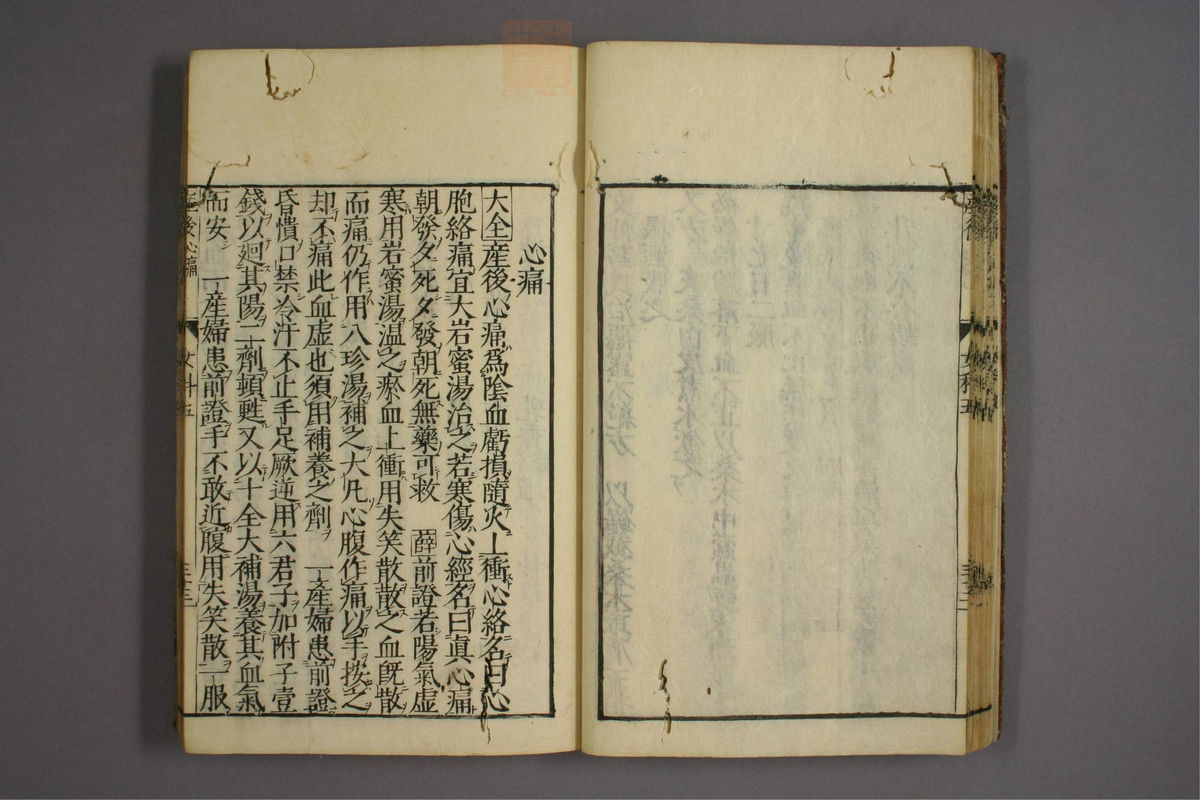 心痛
大全產後心痛爲陰血虧損隨火上衝心絡名曰心
胞絡痛宜大岩蜜湯治之若寒傷心經名曰眞心痛
朝發夕死夕發朝死無藥可救 薛前證若陽氣虛
寒用岩蜜湯温之瘀血上衝用失笑散散之血旣散
而痛仍作用八珍湯補之大凡心腹作痛以手按之
却不痛此血虛也須用補養之劑 一產婦患前證
昏憒口禁冷汗不止手足厥逆用六君子加附子壹
錢以廻其陽二劑頓甦又以十全大補湯養其血氣
而安 一產婦患前證手不敢近腹用失笑散一服
後心痛 女科五 三三
女科五